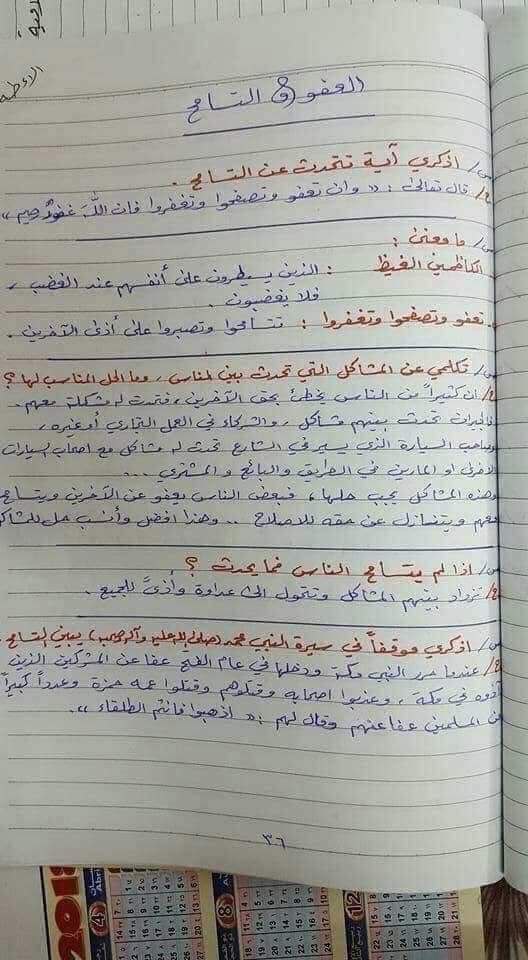 العفو والتسامح
س/ اذكري آية تتحدث عن التسامح.
ج/ قال تعالى: « وان تعفو وتصفحوا وتغفروا فان الله غفور رحيم »
س/ ما معنى:
الكاظمين الغيظ : الذين يسيطرون على أنفسهم عند الغضب،
فلا يغضبون.
تعفو وتصفحوا وتغفروا : تتسامحوا وتصبروا على أذى الآخرين.
س/ تكلمي عن المشاكل التي تحدث بين الناس، وما الحل المناسب لها؟
ج/ ان كثيراً من الناس يخطئ بحق الآخرين، فتحدث له مشكلة معهم.
فالجيران تحدث بينهم مشاكل، والشركاء في العمل التجاري أو غيره،
وصاحب السيارة الذي يسير في الشارع تحدث له مشاكل مع اصحاب السيارات
الاخرى او المارين في الطريق والبائع والمشتري ...
وهذه المشاكل يجب حلها، فبعض الناس يعفو عن الآخرين ويتسامح
معهم ويتنازل عن حقه للاصلاح .. وهذا افضل وأنسب حل للمشاكل
س/ اذا لم يتسامح الناس فما يحدث ؟
ج/ تزداد بينهم المشاكل وتتحول الى عداوة وأذىً للجميع.
س/ اذكري موقفاً في سيرة النبي محمد (صلى الله عليه وآله وصحبه) يبين التسامح.
ج/ عندما حرر النبي مكة ودخلها في عام الفتح عفا عن المشركين الذين
آذوه في مكة، وعذبوا اصحابه وقتلوهم وقتلوا عمه حمزة وعدداً كبيراً
من المسلمين عفا عنهم وقال لهم: « اذهبوا فانتم الطلقاء ».
٣٦
2015
4
8
12